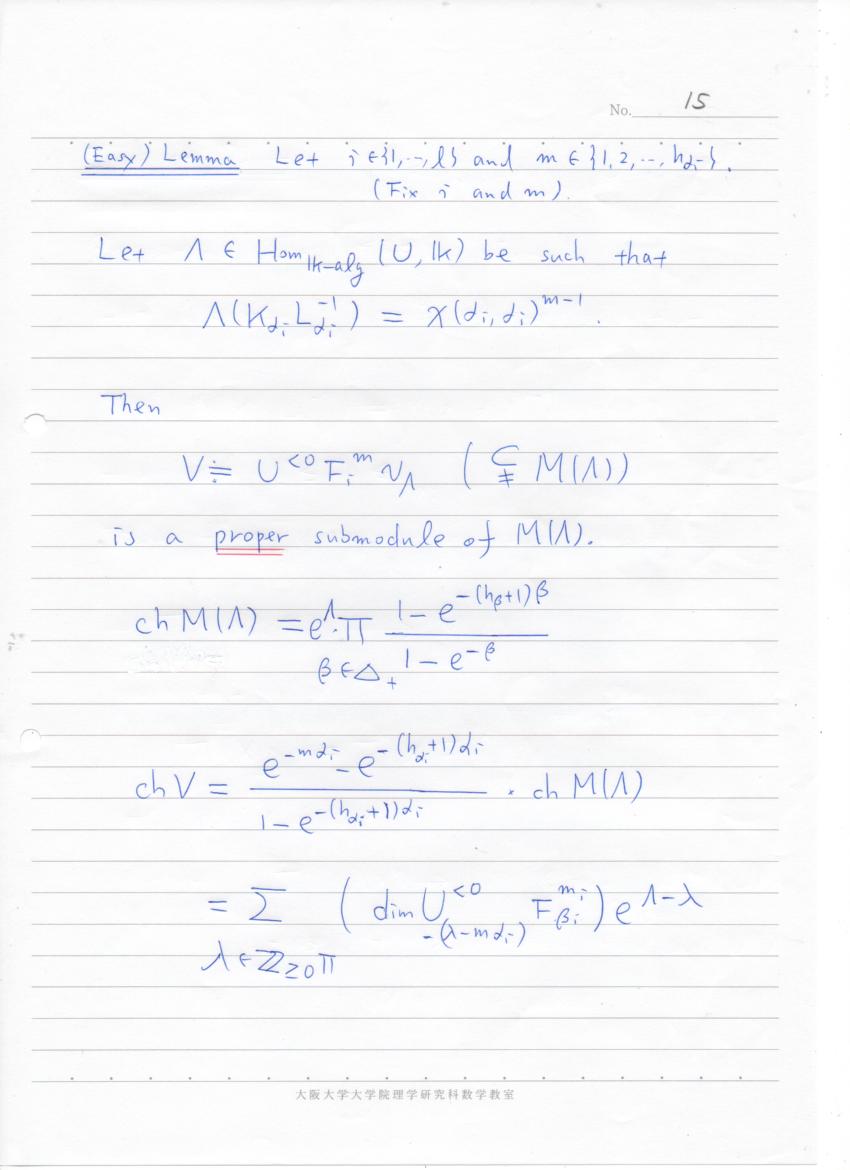 No. 15
(Easy) Lemma Let i ∈ {1,‥,l} and m ∈ {1,2,‥,h_{α_i}}.
(Fix i and m).
Let Λ ∈ Hom_{𝕜-alg}(U, 𝕜) be such that
Λ(K_{α_i} L_{α_i}^{-1}) = χ(α_i, α_i)^{m-1}.
Then
V ≔ U^{<0} F_i^m v_Λ ( ⊊ M(Λ))
is a proper submodule of M(Λ).
ch M(Λ) = e^Λ · Π_{β∈Δ_+} \frac{1 - e^{-(h_β+1)β}}{1 - e^{-β}}
ch V = \frac{e^{-mα_i} - e^{-(h_{α_i}+1)α_i}}{1 - e^{-(h_{α_i}+1)α_i}} · ch M(Λ)
= Σ_{λ∈ℤ_{≥0}Π} ( dim U^{<0}_{-(λ-mα_i)} F_{β_i}^{m_i} ) e^{Λ-λ}
大阪大学大学院理学研究科数学教室